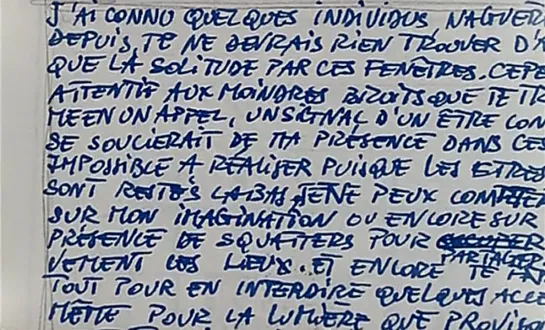 J'AI CONNU QUELQUES INDIVIDUS NAGUER
DEPUIS, JE NE DEVRAIS RIEN TROUVER D'A
QUE LA SOLITUDE PAR CES FENETRES. CEPE
ATTENTIF AUX MOINDRES BRUITS QUE JE TR
ME EN UN APPEL, UN SIGNAL D'UN ETRE CON
SE SOUCIERAIT DE MA PRESENCE DANS CES
IMPOSSIBLE A REALISER PUISQUE LES ETRES
SONT RESTES LA BAS, JE NE PEUX COMPTER
SUR MON IMAGINATION OU ENCORE SUR
PRESENCE DE SQUATTERS POUR PARTAGER
VEMENT CES LIEUX. ET ENCORE JE FA
TOUT POUR EN INTERDIRE QUELQUES ACCE
MÊME POUR LA LUMIERE QUE PROVISO